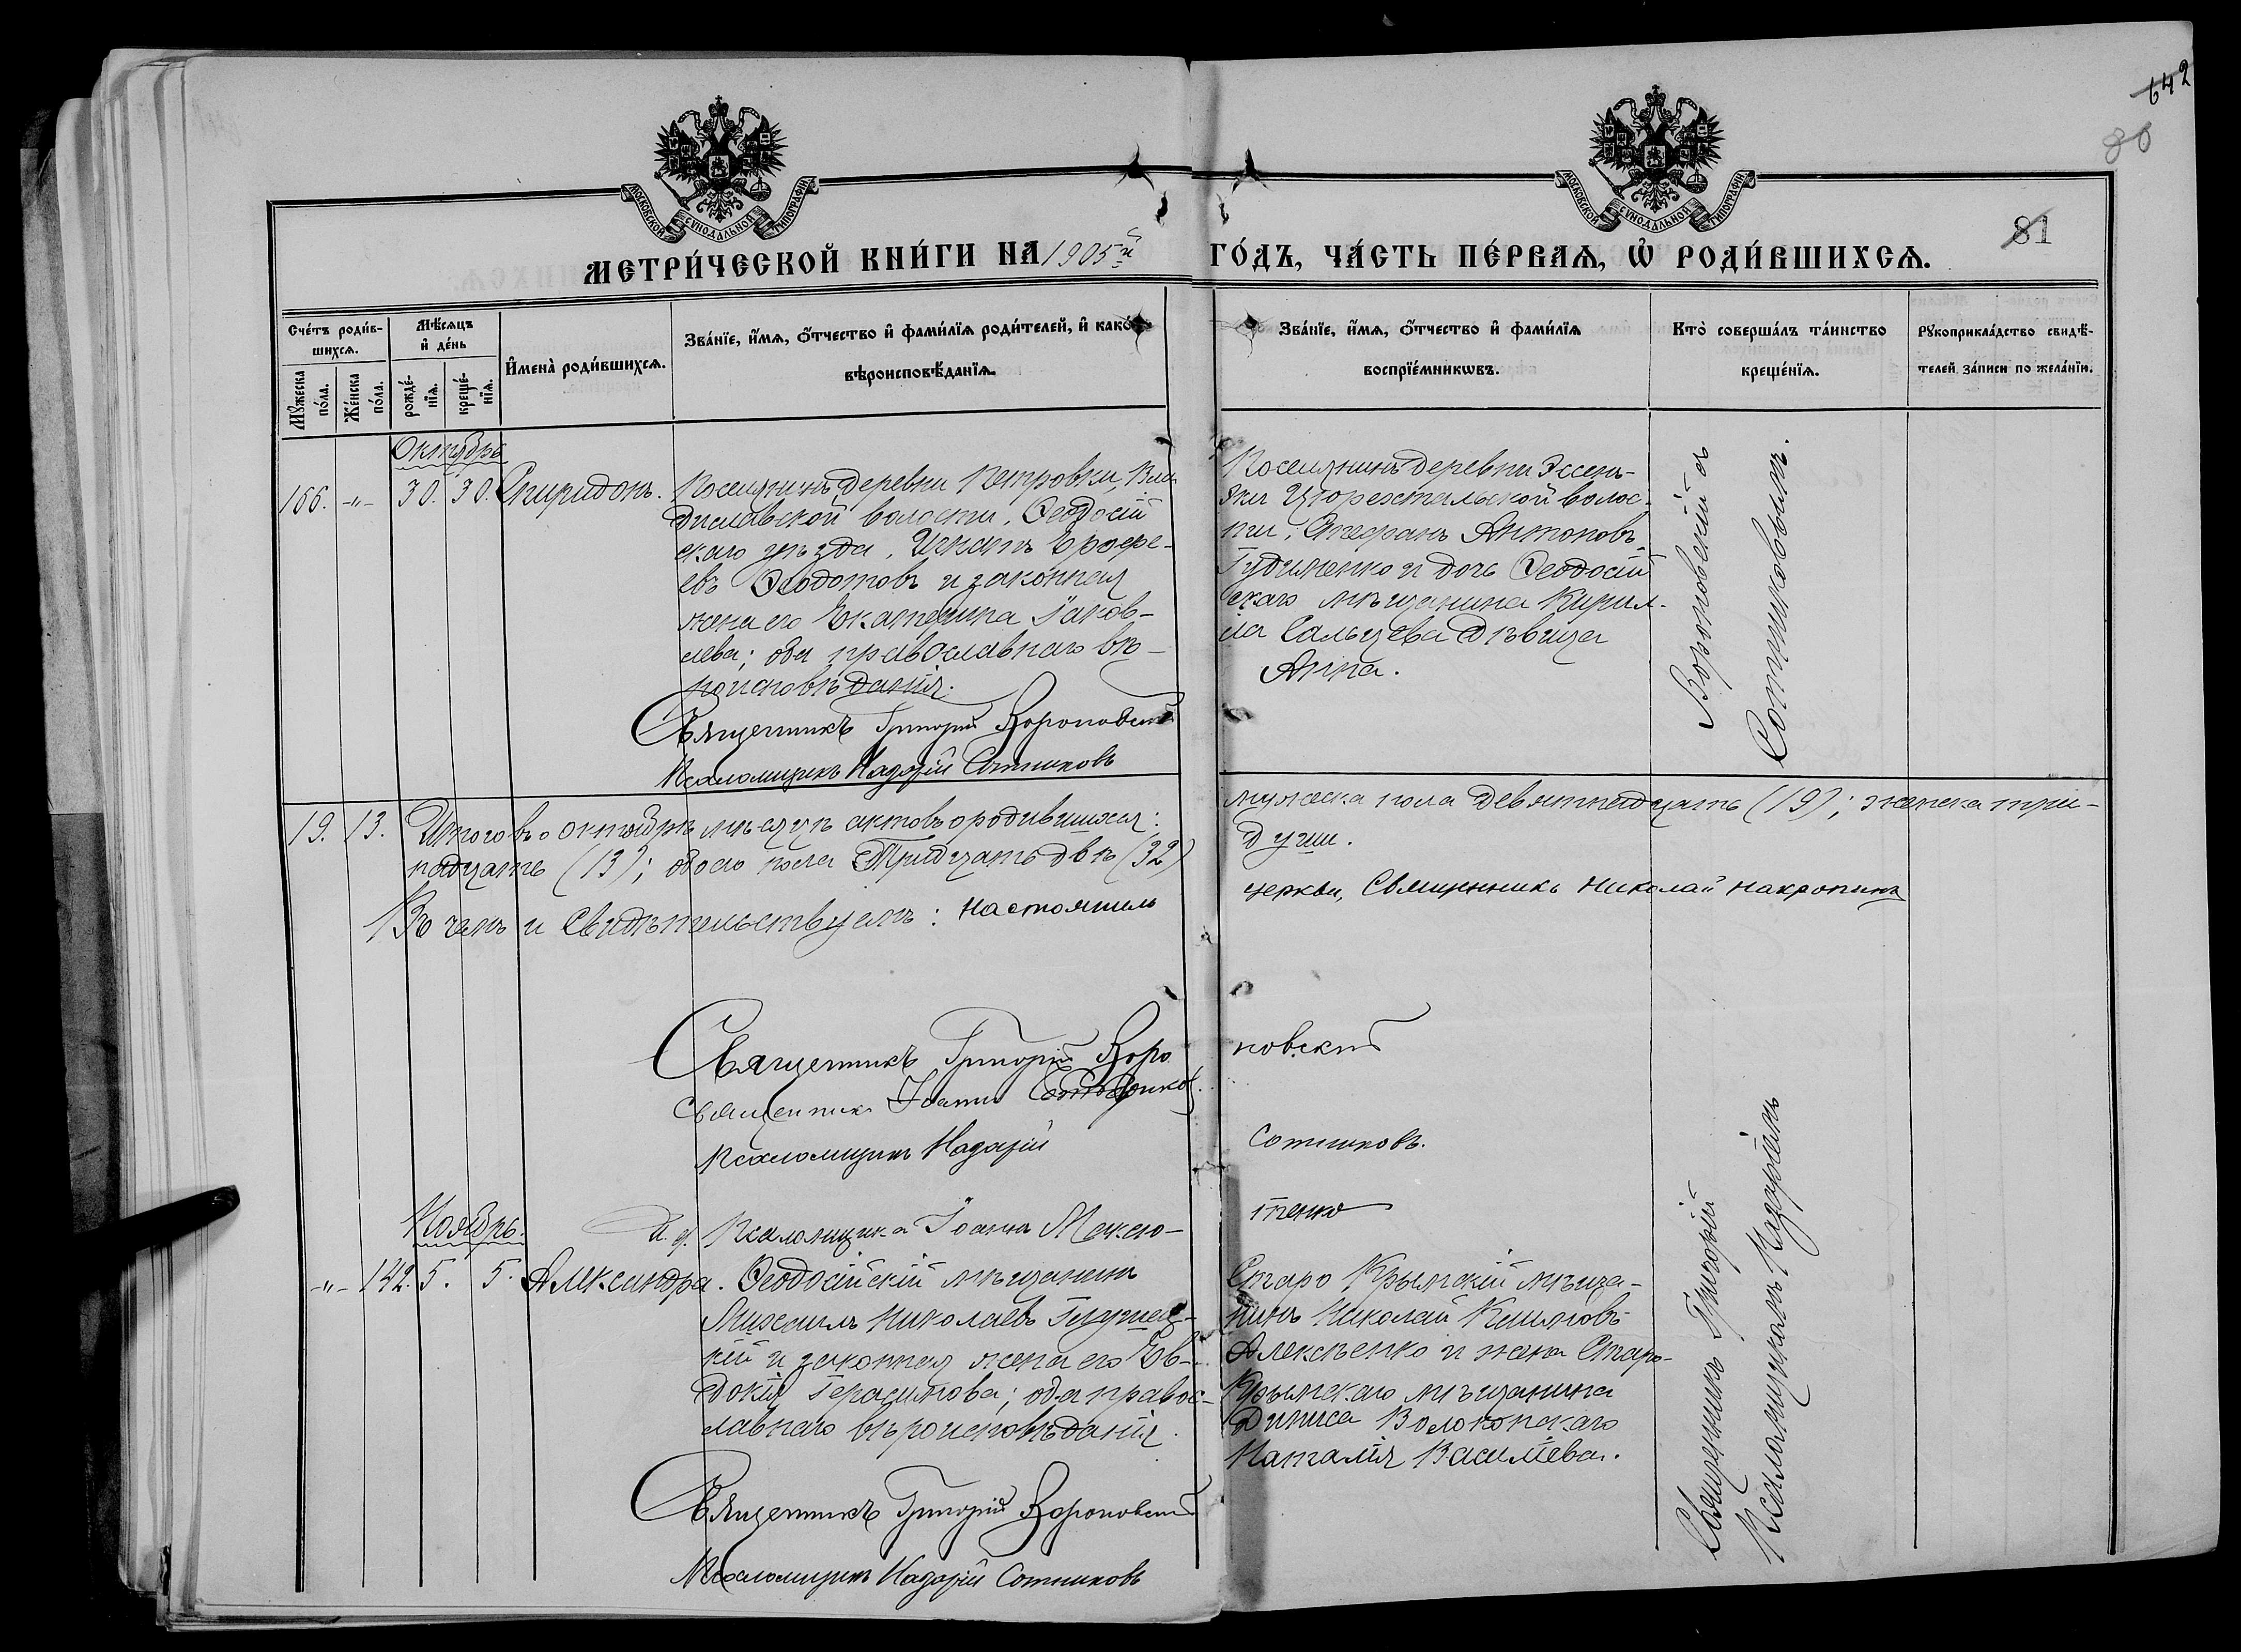 642
80
81
МОСКОВСКОЙ СѴНОДАЛЬНОЙ ТИПОГРАФІИ
МОСКОВСКОЙ СѴНОДАЛЬНОЙ ТИПОГРАФІИ
МЕТРИ́ЧЕСКОЙ КНИ́ГИ НА 1905й ГО́ДЪ, ЧА́СТЬ ПЕ́РВАѦ, Ѡ҆ РОДИ́ВШИХСѦ.
Сче́тъ роди́в-
шихсѧ.
Мꙋ́жеска по́ла.
Же́нска по́ла.
Мѣ́сѧцъ
и҆ де́нь
рожде́-
нїѧ.
креще́-
нїѧ.
И҆мена̀ роди́вшихсѧ.
Зва́нїе, и҆́мѧ, ѻ҆́тчество и҆ фами́лїѧ роди́телей, и҆ како́гѡ
вѣроисповѣ́данїѧ.
Зва́нїе, и҆́мѧ, ѻ҆́тчество и҆ фами́лїѧ
воспрїе́мникѡвъ.
Кто̀ соверша́лъ та́инство
креще́нїѧ.
Рꙋкоприкла́дство свидѣ́-
телей за́писи по жела́нїю.
Октябрь
166. -„- 30. 30. Спиридонъ.
Поселянинъ деревни Петровки, Вла-
диславской волости, Ѳеодосій
скаго уѣзда, Игнатъ Ерофе-
евъ Ѳеодотовъ и законная
жена его Екатерина Іаков-
лева; оба православнаго вѣ-
роисповѣданія.
Священникъ Григорій Вороновскій
Псаломщикъ Назарій Сотниковъ
Поселянинъ деревни Эссен-
эки Цюрехтальской волос-
ти, Стефанъ Антоновъ
Гудименко и дочь Ѳеодосій
скаго мѣщанина Кирил-
ла Сальцева дѣвица
Анна.
Вороновскій съ
Сотниковымъ.
19. 13. Итого въ октябрѣ мѣсяцѣ актовъ о родившихся: мужеска пола девятнадцать (19); женска три-
надцать (13); обоего пола Тридцать двѣ (32) души.
Въ чемъ и свидѣтельствуемъ: Настоятель церкви, Священникъ Николай Накропинъ
Священникъ Григорій Вороновскій
Священникъ Іоаннъ
Псаломщикъ Назарій Сотниковъ.
И. д. Псаломщика Іоаннъ
Ноябрь.
-„- 142. 5. 5. Александра.
Ѳеодосійскій мѣщанинъ
Михаилъ Николаевъ
кій и законная жена его Ев-
докія Герасимова; оба правос-
лавнаго вѣроисповѣданія.
Священникъ Григорій Вороновскій
Псаломщикъ Назарій Сотниковъ
Старо Крымскій мѣща-
нинъ Николай
Алексѣенко и жена Старо-
Крымскаго мѣщанина
Диниса Волоконскаго
Наталія Василіева.
Священникъ Григорій
Псаломщикомъ Назаріемъ